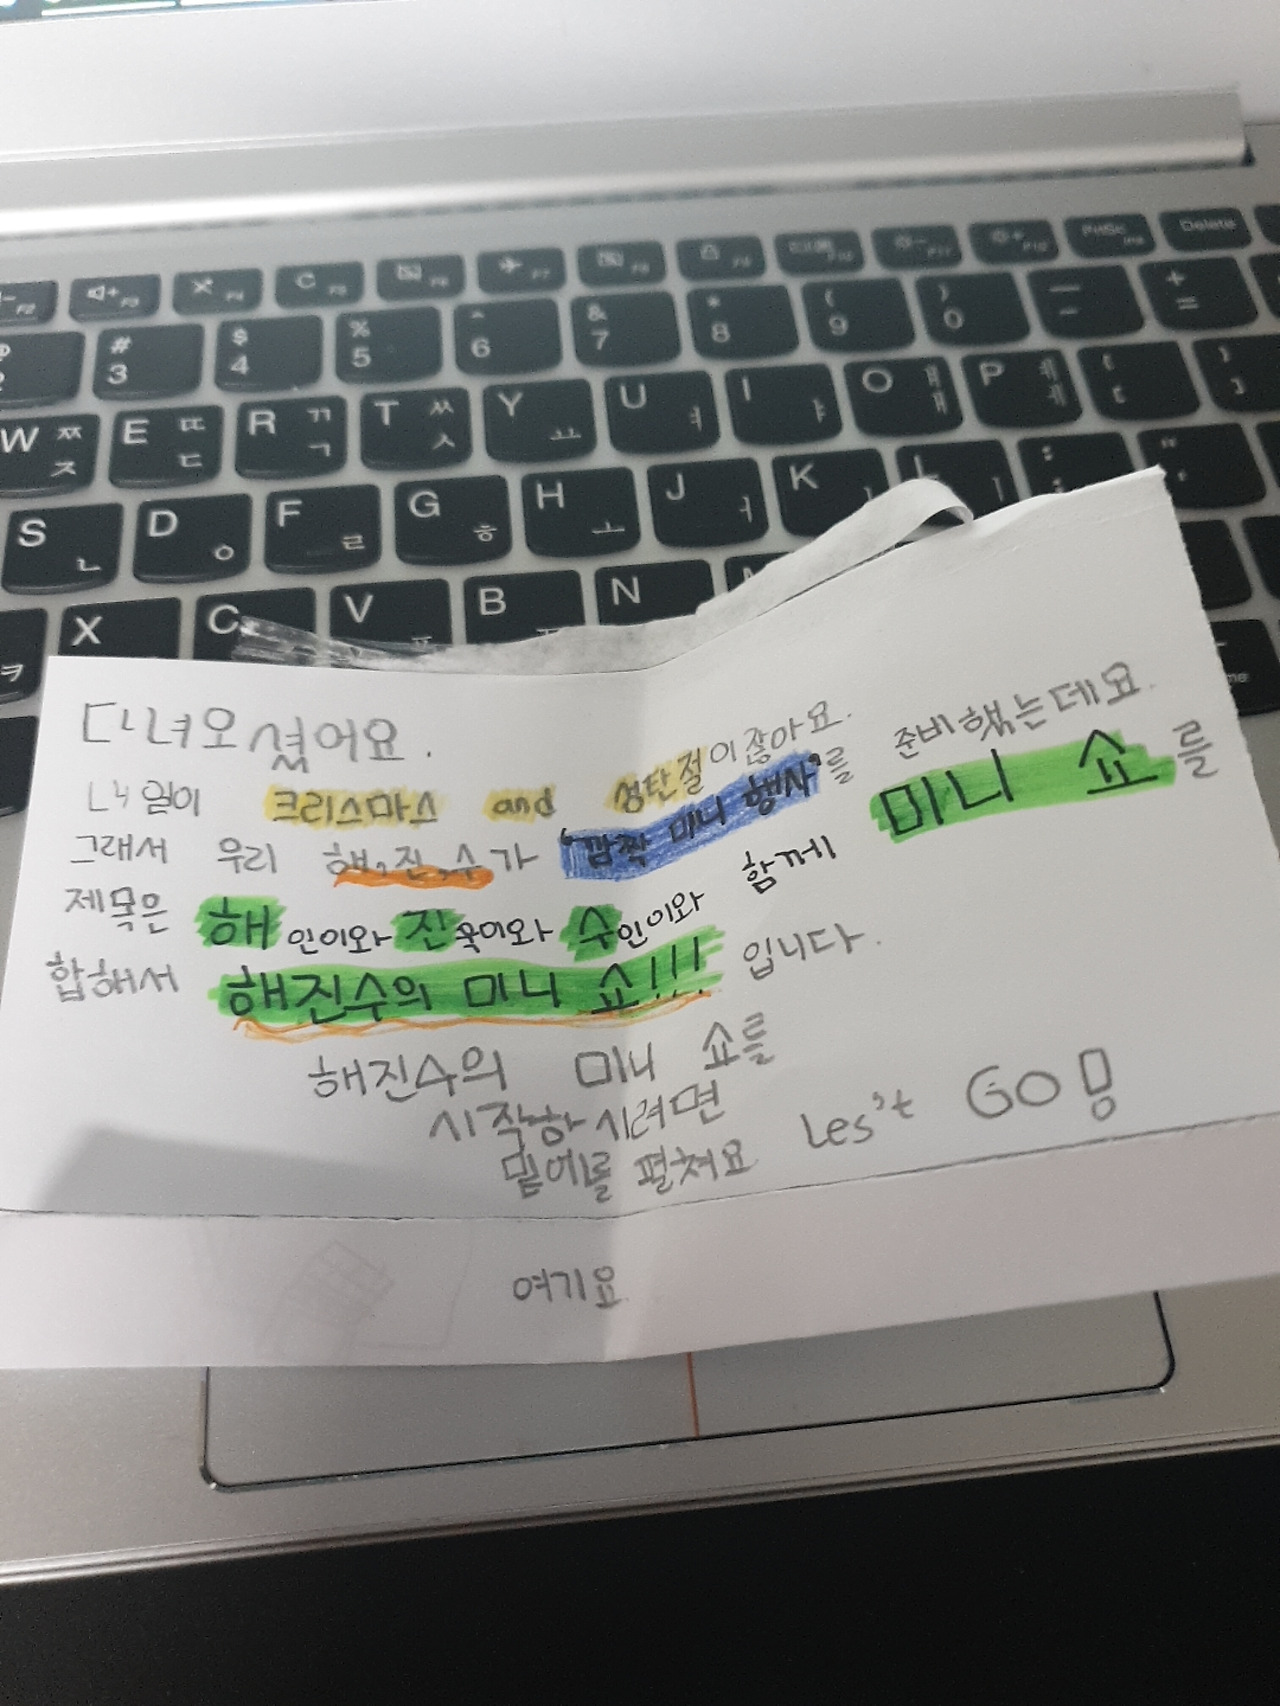 F2
F3
F4
C F5
F6
F7
F8
F9
F10
F11
F12
PrtSc
Delete
# 3
$ 4
% 5
^ 6
& 7
* 8
( 9
) 0
— -
+ =
W ㅉ ㅈ
E ㄸ ㄷ
R ㄲ ㄱ
T ㅆ ㅅ
Y ㅛ
U ㅕ
I ㅑ
O ㅒ ㅐ
P ㅖ ㅔ
{ [
} ]
S ㄴ
D ㅇ
F ㄹ
G ㅎ
H ㅗ
J ㅓ
K ㅏ
L ㅣ
: ;
ㅋ
X
C
V ㅍ
B
N
다녀오셨어요.
내일이 크리스마스 and 성탄절이잖아요.
그래서 우리 해,진,수가 '깜짝 미니 행사'를 준비했는데요.
제목은 해인이와 진욱이와 수인이와 함께 미니 쇼를
합해서 해진수의 미니 쇼!!! 입니다.
해진수의 미니 쇼를
시작하시려면
밑에를 펼쳐요 Les't GO!
여기요